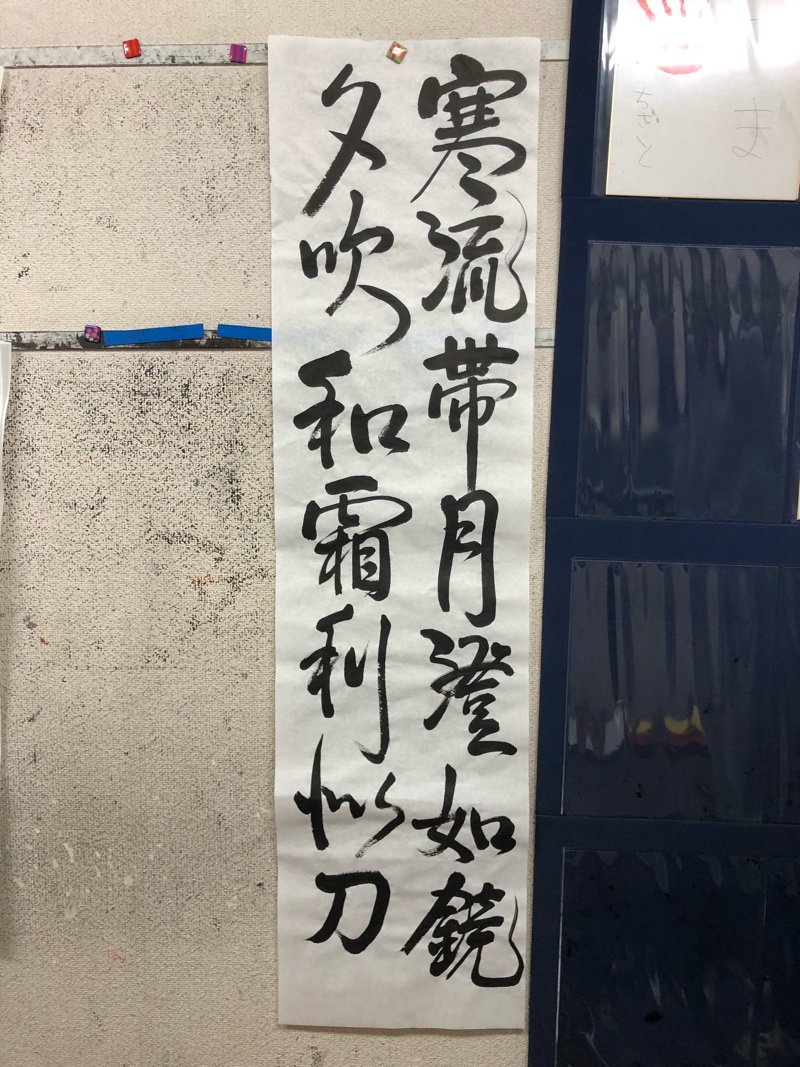 寒流帯月澄如鏡
夕吹和霜利似刀
ま
ちさと